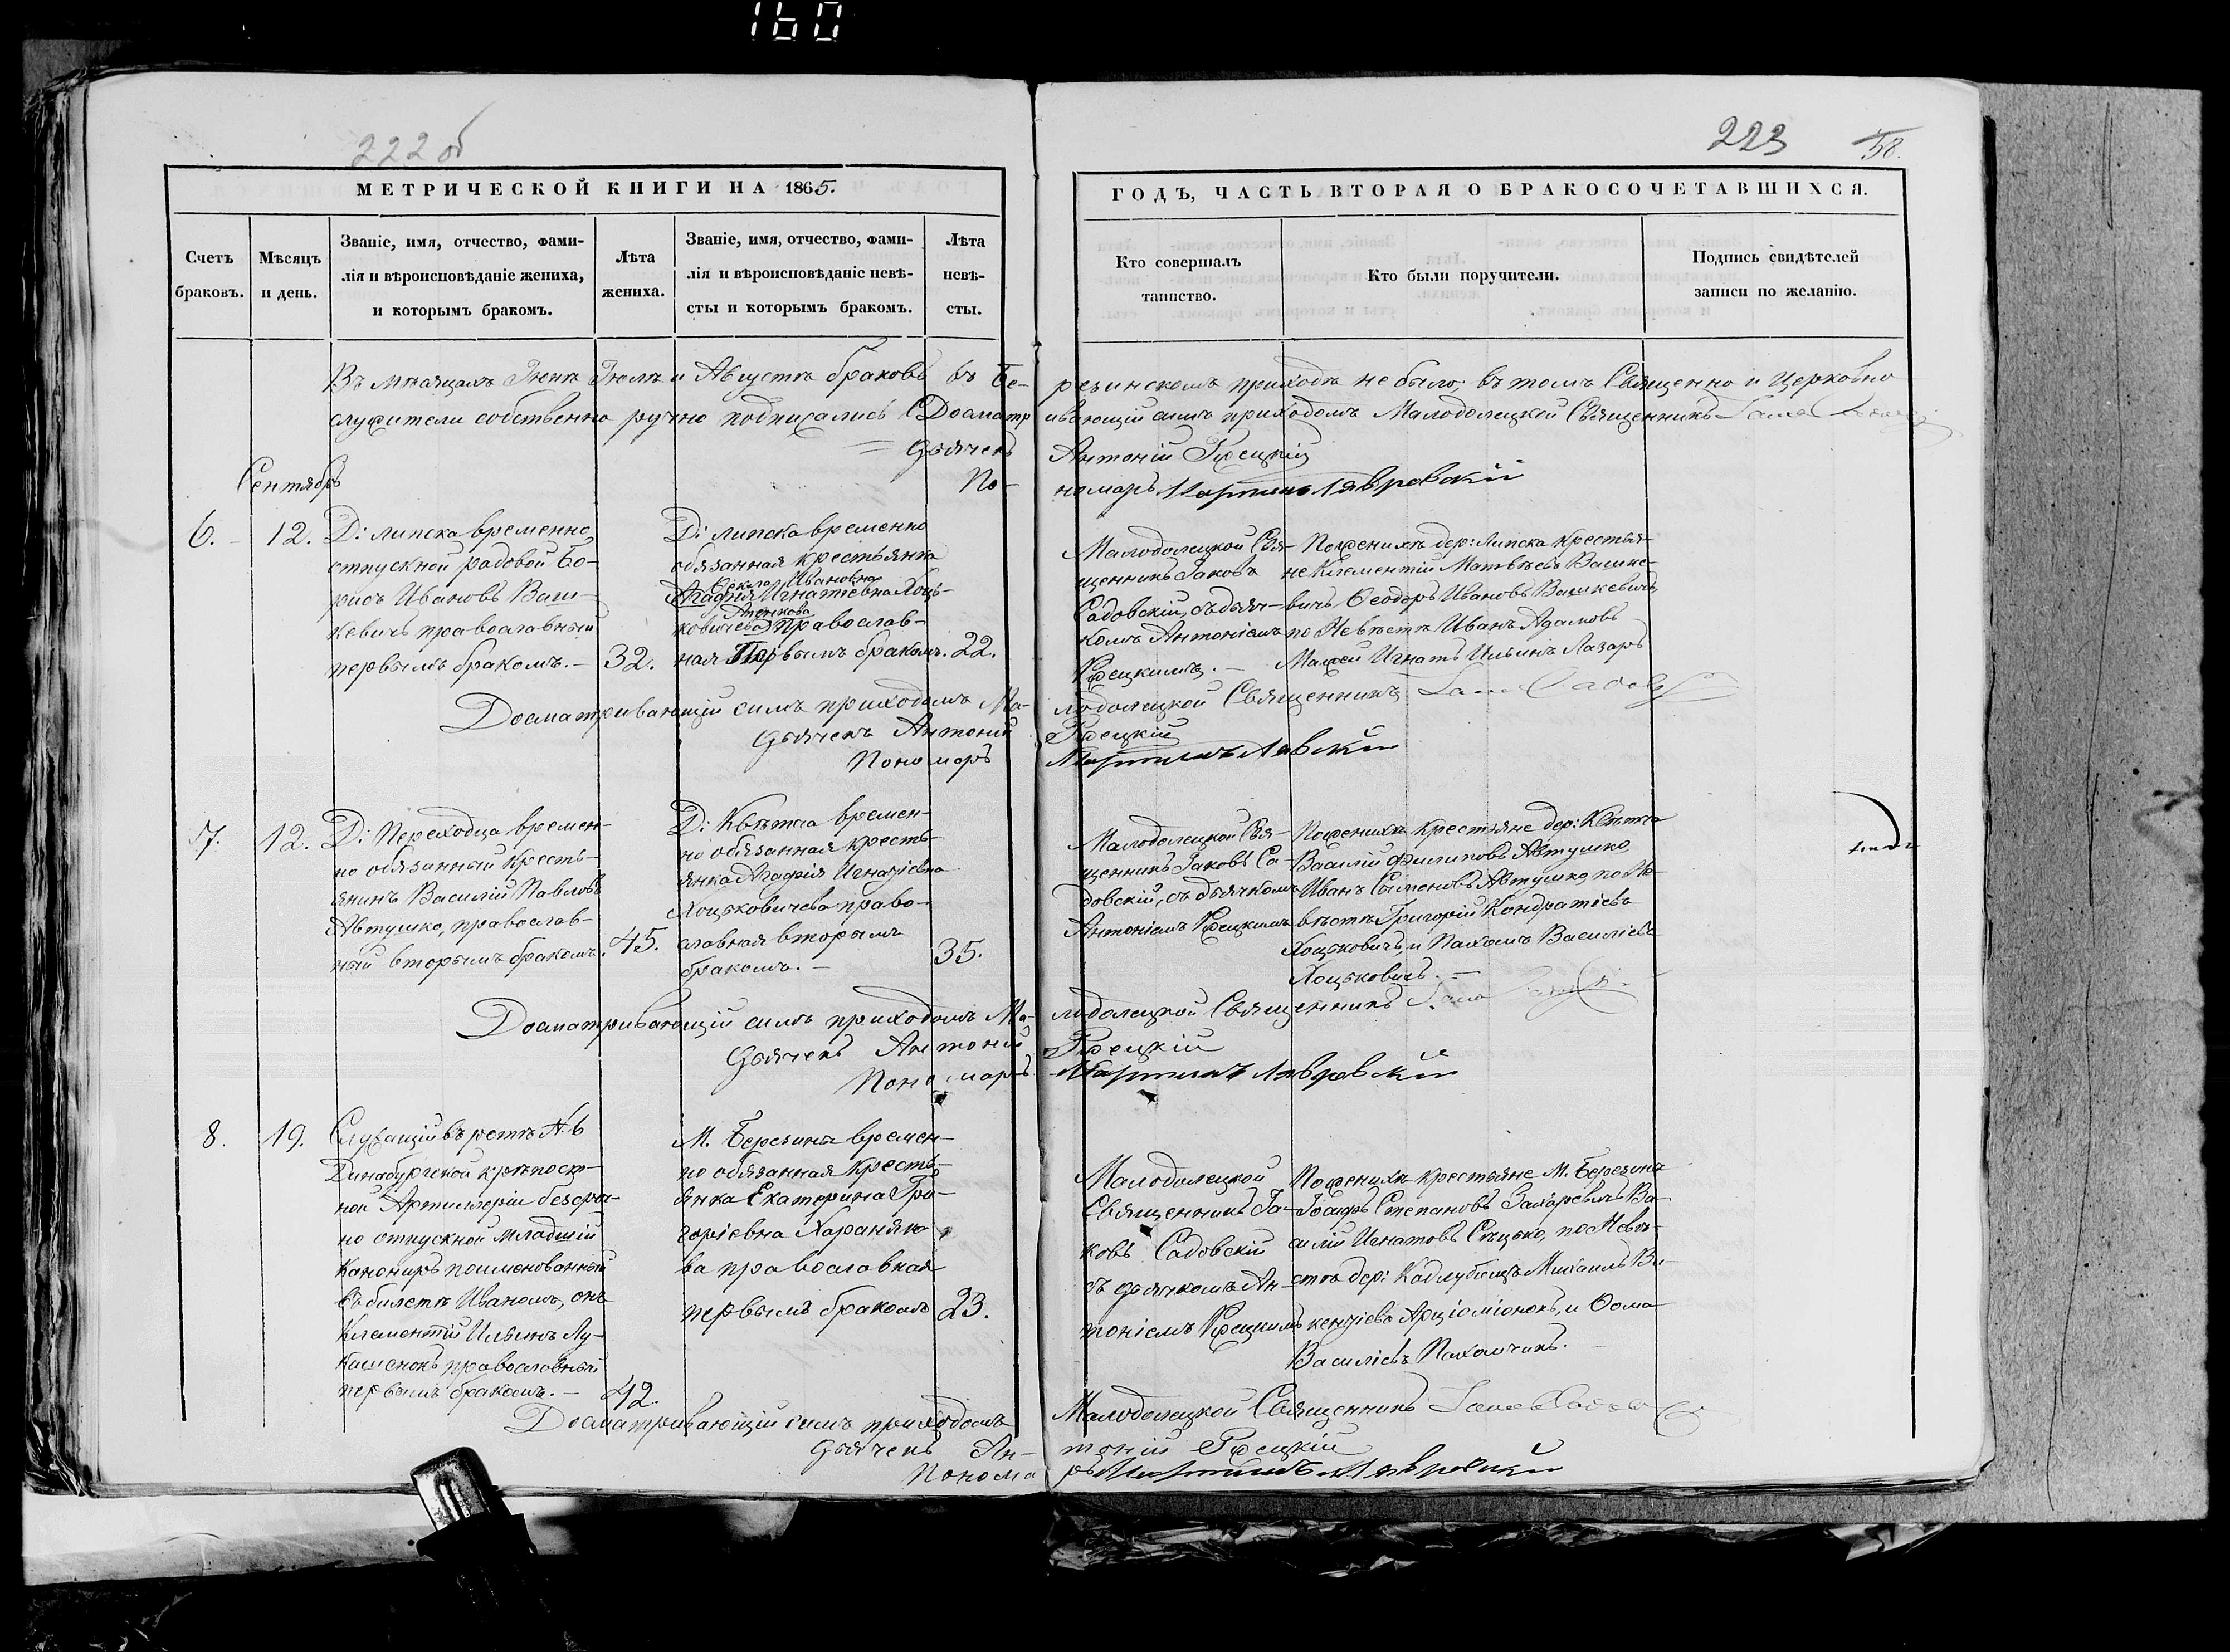 160
222 об
223
58.
МЕТРИЧЕСКОЙ КНИГИ НА 1865.
ГОДЪ, ЧАСТЬ ВТОРАЯ О БРАКОСОЧЕТАВШИХСЯ.
Счетъ браковъ.
Мѣсяцъ и день.
Званіе, имя, отчество, фами-
лія и вѣроисповѣданіе жениха,
и которымъ бракомъ.
Лѣта
жениха.
Званіе, имя, отчество, фами-
лія и вѣроисповѣданіе невѣ-
сты и которымъ бракомъ.
Лѣта
невѣ-
сты.
Кто совершалъ
таинство.
Кто были поручители.
Подпись свидѣтелей
записи по желанію.
Въ мѣсяцахъ Іюнѣ Іюлѣ и Августѣ браковъ въ Бе-
резинскомъ приходѣ не было; въ томъ Священно и церковно
служители собственно ручно подписались Досматр
ивающій симъ приходомъ Малодолецкой Священникъ
Дьячекъ
Антоній
По-
номарь Мартинъ Лавровскій
Сентябрь
6.
12.
Д: Липска временно
отпускной рядовой Бо-
рисъ Ивановъ Ваш-
кевичъ православный
первымъ бракомъ.
32.
Д: Липска временно
обязанная крестьянка
Ѳекла Ивановна
Агафія Игнатіевна Хоць-
ковичева православ-
ная Первымъ бракомъ.
22.
Малодолецкой Свя-
щенникъ Іаковъ
Садовскій, съ дьяч-
комъ Антоніемъ
По женихѣ дер: Липска крестья-
не Клементій Матвѣевъ Вашке-
вичъ Ѳеодоръ Ивановъ Вашкевичъ
по Невѣстѣ Иванъ Адамовъ
Игнатъ Ильинъ Лазарь
Досматривающій симъ приходомъ Ма-
лодолецкой Священникъ
Дьячекъ Антоній
Пономарь
7.
12.
Д: Переходца времен-
но обязанный Кресть-
янинъ Василій Павловъ
Автушко, православ-
ный вторымъ бракомъ.
45.
Д: Квѣтча времен-
но обязанная кресть-
янка Агафія Игнатіевна
Хоцьковичева право-
славная вторымъ
бракомъ.
35.
Малодолецкой Свя-
щенникъ Іаковъ Са-
довскій, съ дьячкомъ
Антоніемъ
По женихѣ крестьяне дер: Квѣтча
Василій Филиповъ Автушко,
Иванъ Сымоновъ Автушко, по Не-
вѣстѣ Григорій Кондратіевъ
Хоцьковичъ, и Пахомъ Василіевъ
Хоцьковичъ.
Досматривающій симъ приходомъ Ма-
лодолецкой Священникъ
Дьячекъ Антоній
Пономарь
Мартинъ Лавровскій
8.
19.
Служащій въ ротѣ № 6
Динабургской крѣпост-
ной Артиллеріи безсроч-
но отпускной младшій
Канониръ поименованный
въ билетѣ Иваномъ, онъ
Клементій Ильинъ Лу-
кашенокъ православный
первымъ бракомъ.
42.
М. Березина времен-
но обязанная кресть-
янка Екатерина Гри-
горіевна Хараняко-
ва православная
первымъ бракомъ
23.
Малодолецкой
Священникъ Іа-
ковъ Садовскій
съ дьячкомъ Ан-
тоніемъ
По женихѣ крестьяне М. Березина
Іосифъ Степановъ Захаревичъ Ва-
силій Игнатовъ Сѣцько, по Невѣ-
стѣ дер: Кадлубищъ Михаилъ Ви-
кентіевъ Арціоміонокъ, и Ѳома
Василіевъ Пахомчикъ.
Досматривающій симъ приходомъ
Малодолецкой Священникъ
Дьячекъ Ан-
тоній
Понома
рь Мартинъ Лавровскій